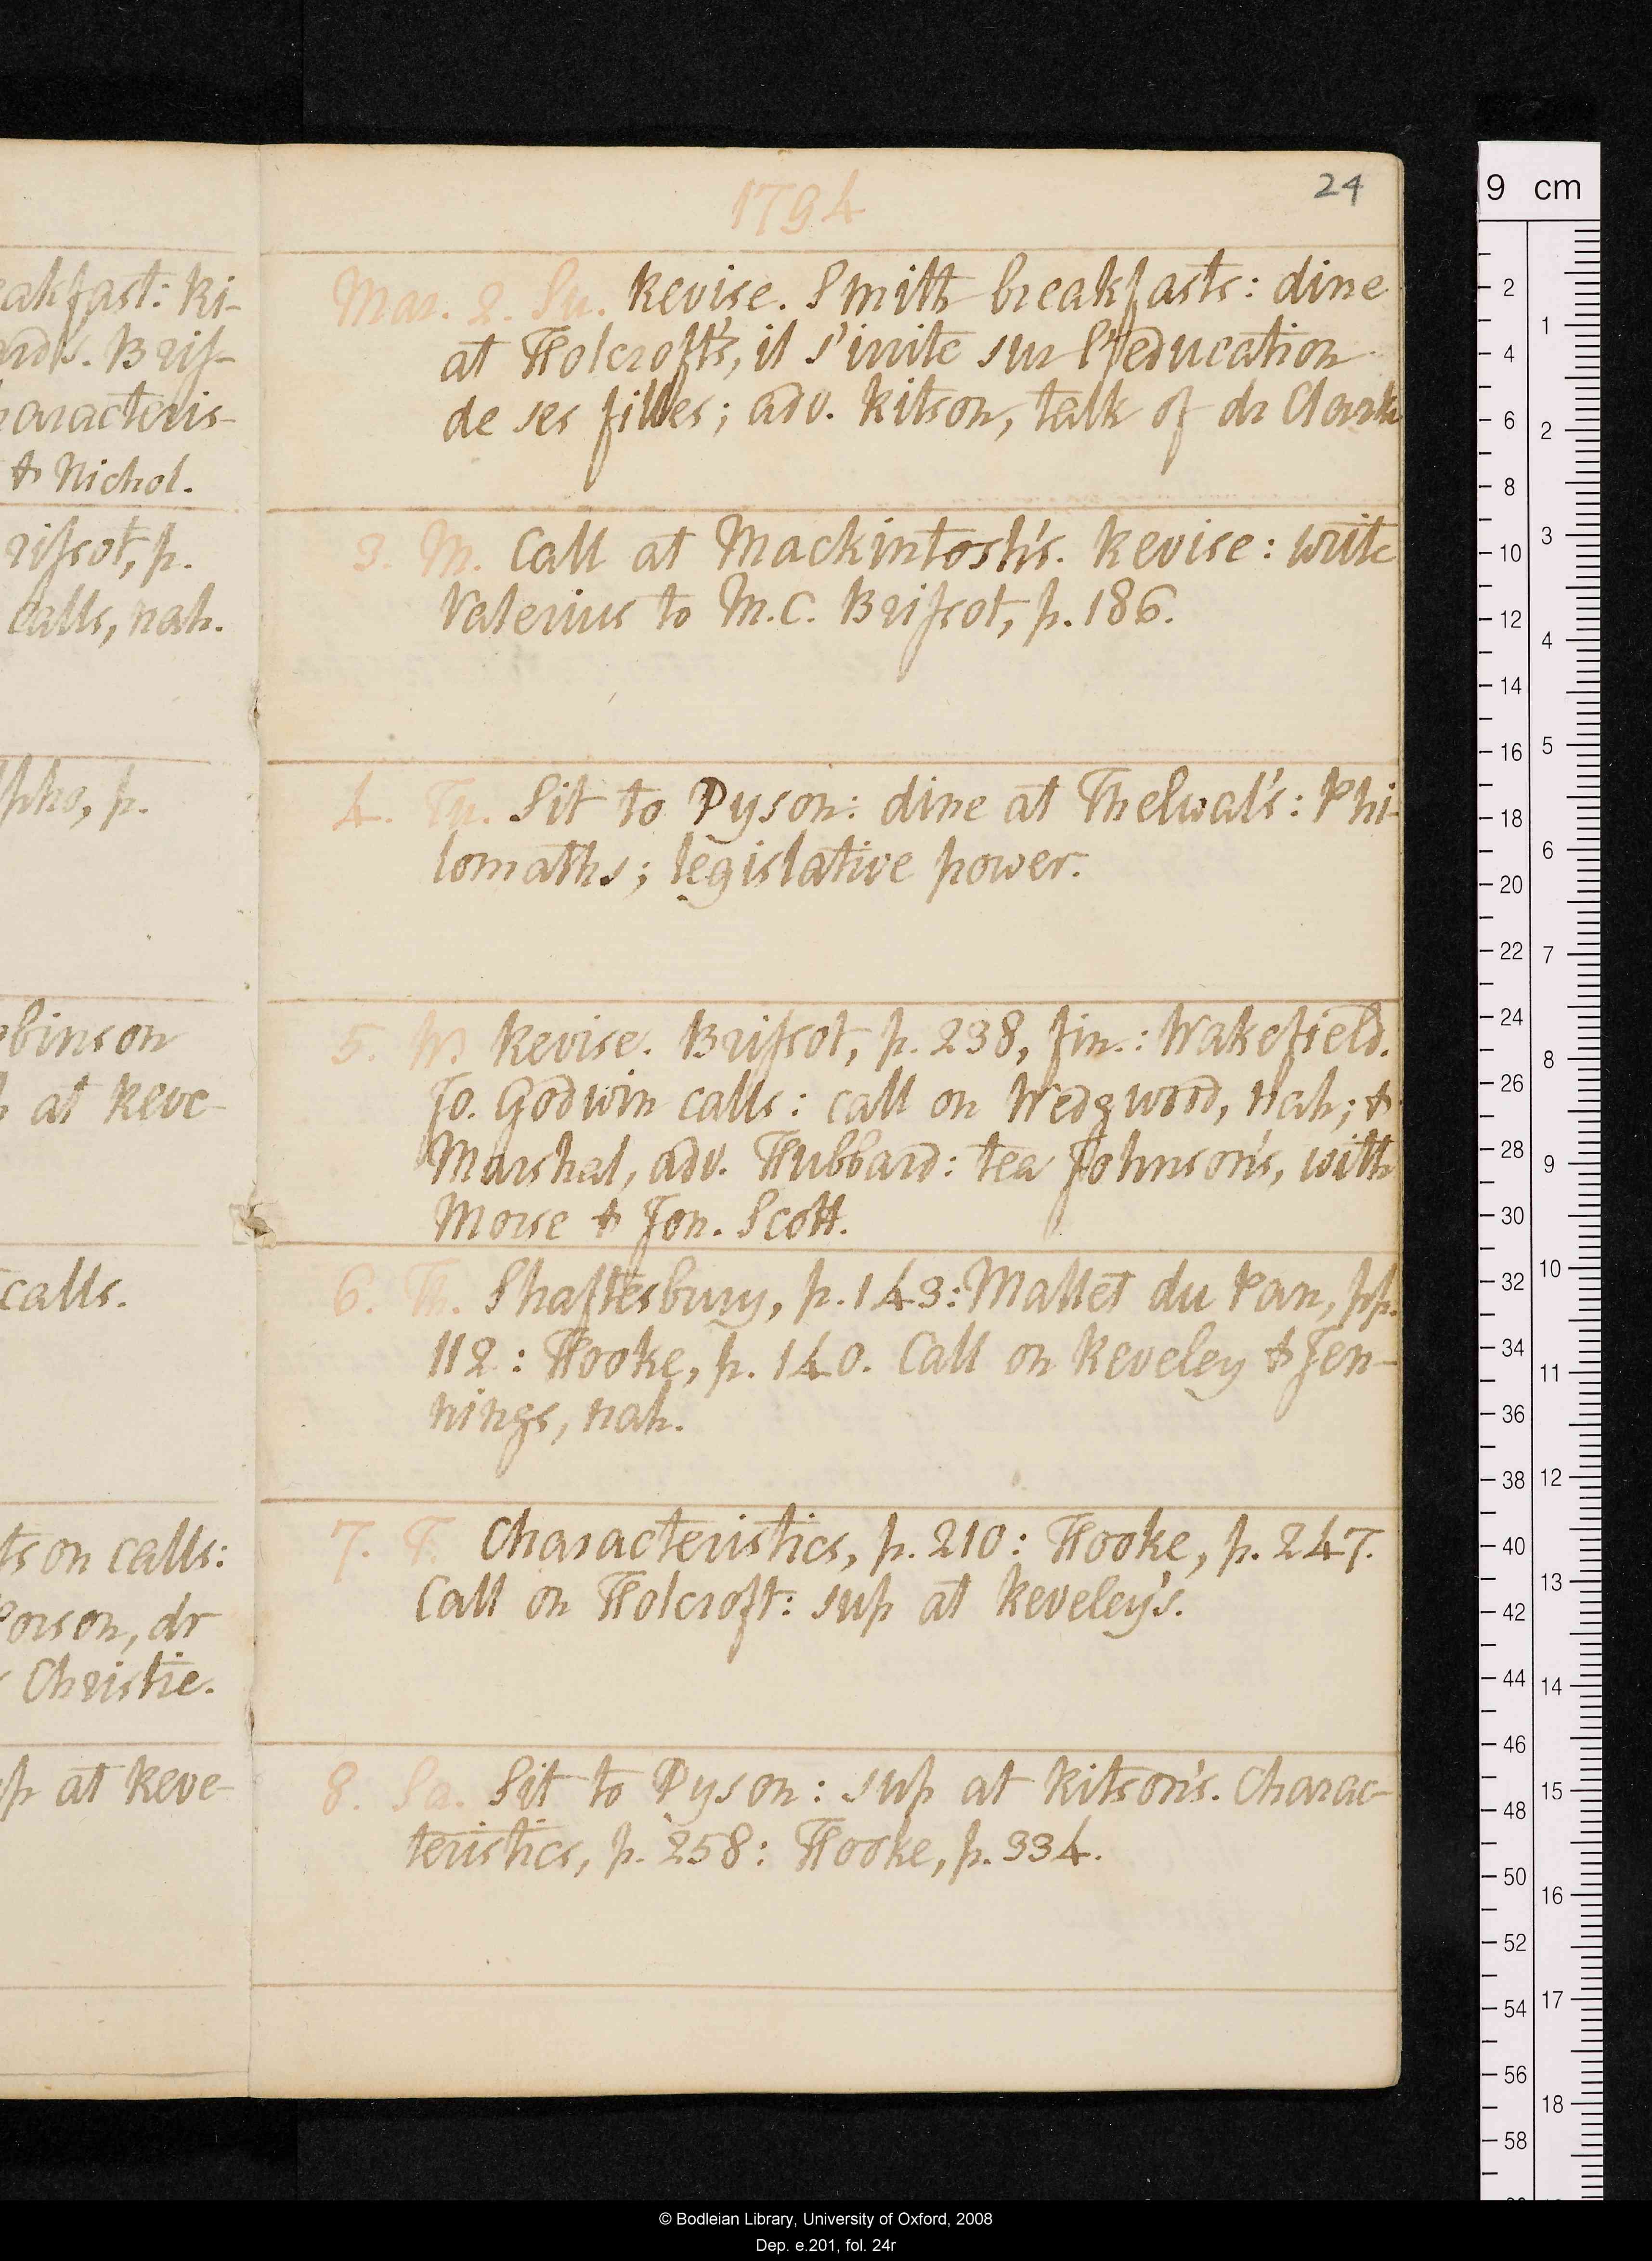 akfast: Ri-
ards. Bris-
haracteris-
& Nichol.
rissot, p.
calls, nah.
pho, p.
binson
at Reve-
calls.
tson calls:
Porson, dr
Christie.
p at Reve-
1794
24
Mar. 2. Su. Revise. Smith breakfasts: dine
at Holcroft's, il s'irrite sur l'education
de ses filles; adv. Ritson, talk of dr Clarke
3. M. Call at Mackintosh's. Revise: write
Valerius to M.C. Brissot, p. 186.
4. Tu. Sit to Dyson: dine at Thelwal's: Phi-
lomaths; legislative power.
5. W. Revise. Brissot, p. 238, fin.: Wakefield.
Jo. Godwin calls: call on Wedgwood, nah; &
Marshal, adv. Hubbard: tea Johnson's, with
Morse & Jon. Scott.
6. Th. Shaftesbury, p. 143: Mallet du Pan, pp.
112: Hooke, p. 140. Call on Reveley & Jen-
nings, nah.
7. F. Characteristics, p. 210: Hooke, p. 247.
Call on Holcroft: sup at Reveley's.
8. Sa. Sit to Dyson: sup at Ritson's. Charac-
teristics, p. 258: Hooke, p. 334.
9 cm
2
4
6
8
10
12
14
16
18
20
22
24
26
28
30
32
34
36
38
40
42
44
46
48
50
52
54
56
58
1
2
3
4
5
6
7
8
9
10
11
12
13
14
15
16
17
18
© Bodleian Library, University of Oxford, 2008
Dep. e.201, fol. 24r